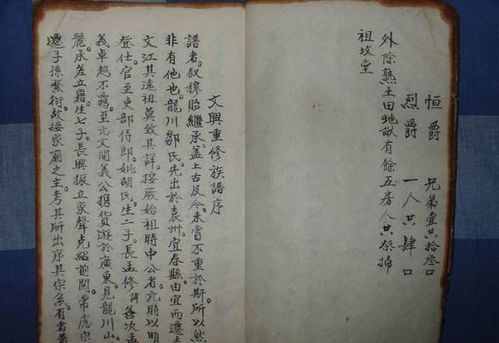 恒爵 兄弟壹共拾叁口
烈爵 一人共肆口
外除熟土田地畝有餘五房人共祭掃
祖坟堂
文興重修族譜序
譜者。叙穆貽繼承。盖上古及今未嘗不重於斯。所以然
非有他也。龍川鄒氏。先出於袁州。宜春縣。由宜而遷
文江。其遠祖莫致其詳。按厥始祖時中公者。元時以明
登仕。官至吏部侍郎。妣胡氏生二子。長孟修。諱善。次孟
義。卓越不羈。至元文間義公携貨遊於廣東。見龍川山
麗。承差立籍。生七子。長興振立家聲。克紹前聞。常慮宗
遷。子孫繁衍。故接家廟之主。考其所出。序其宗系。有者